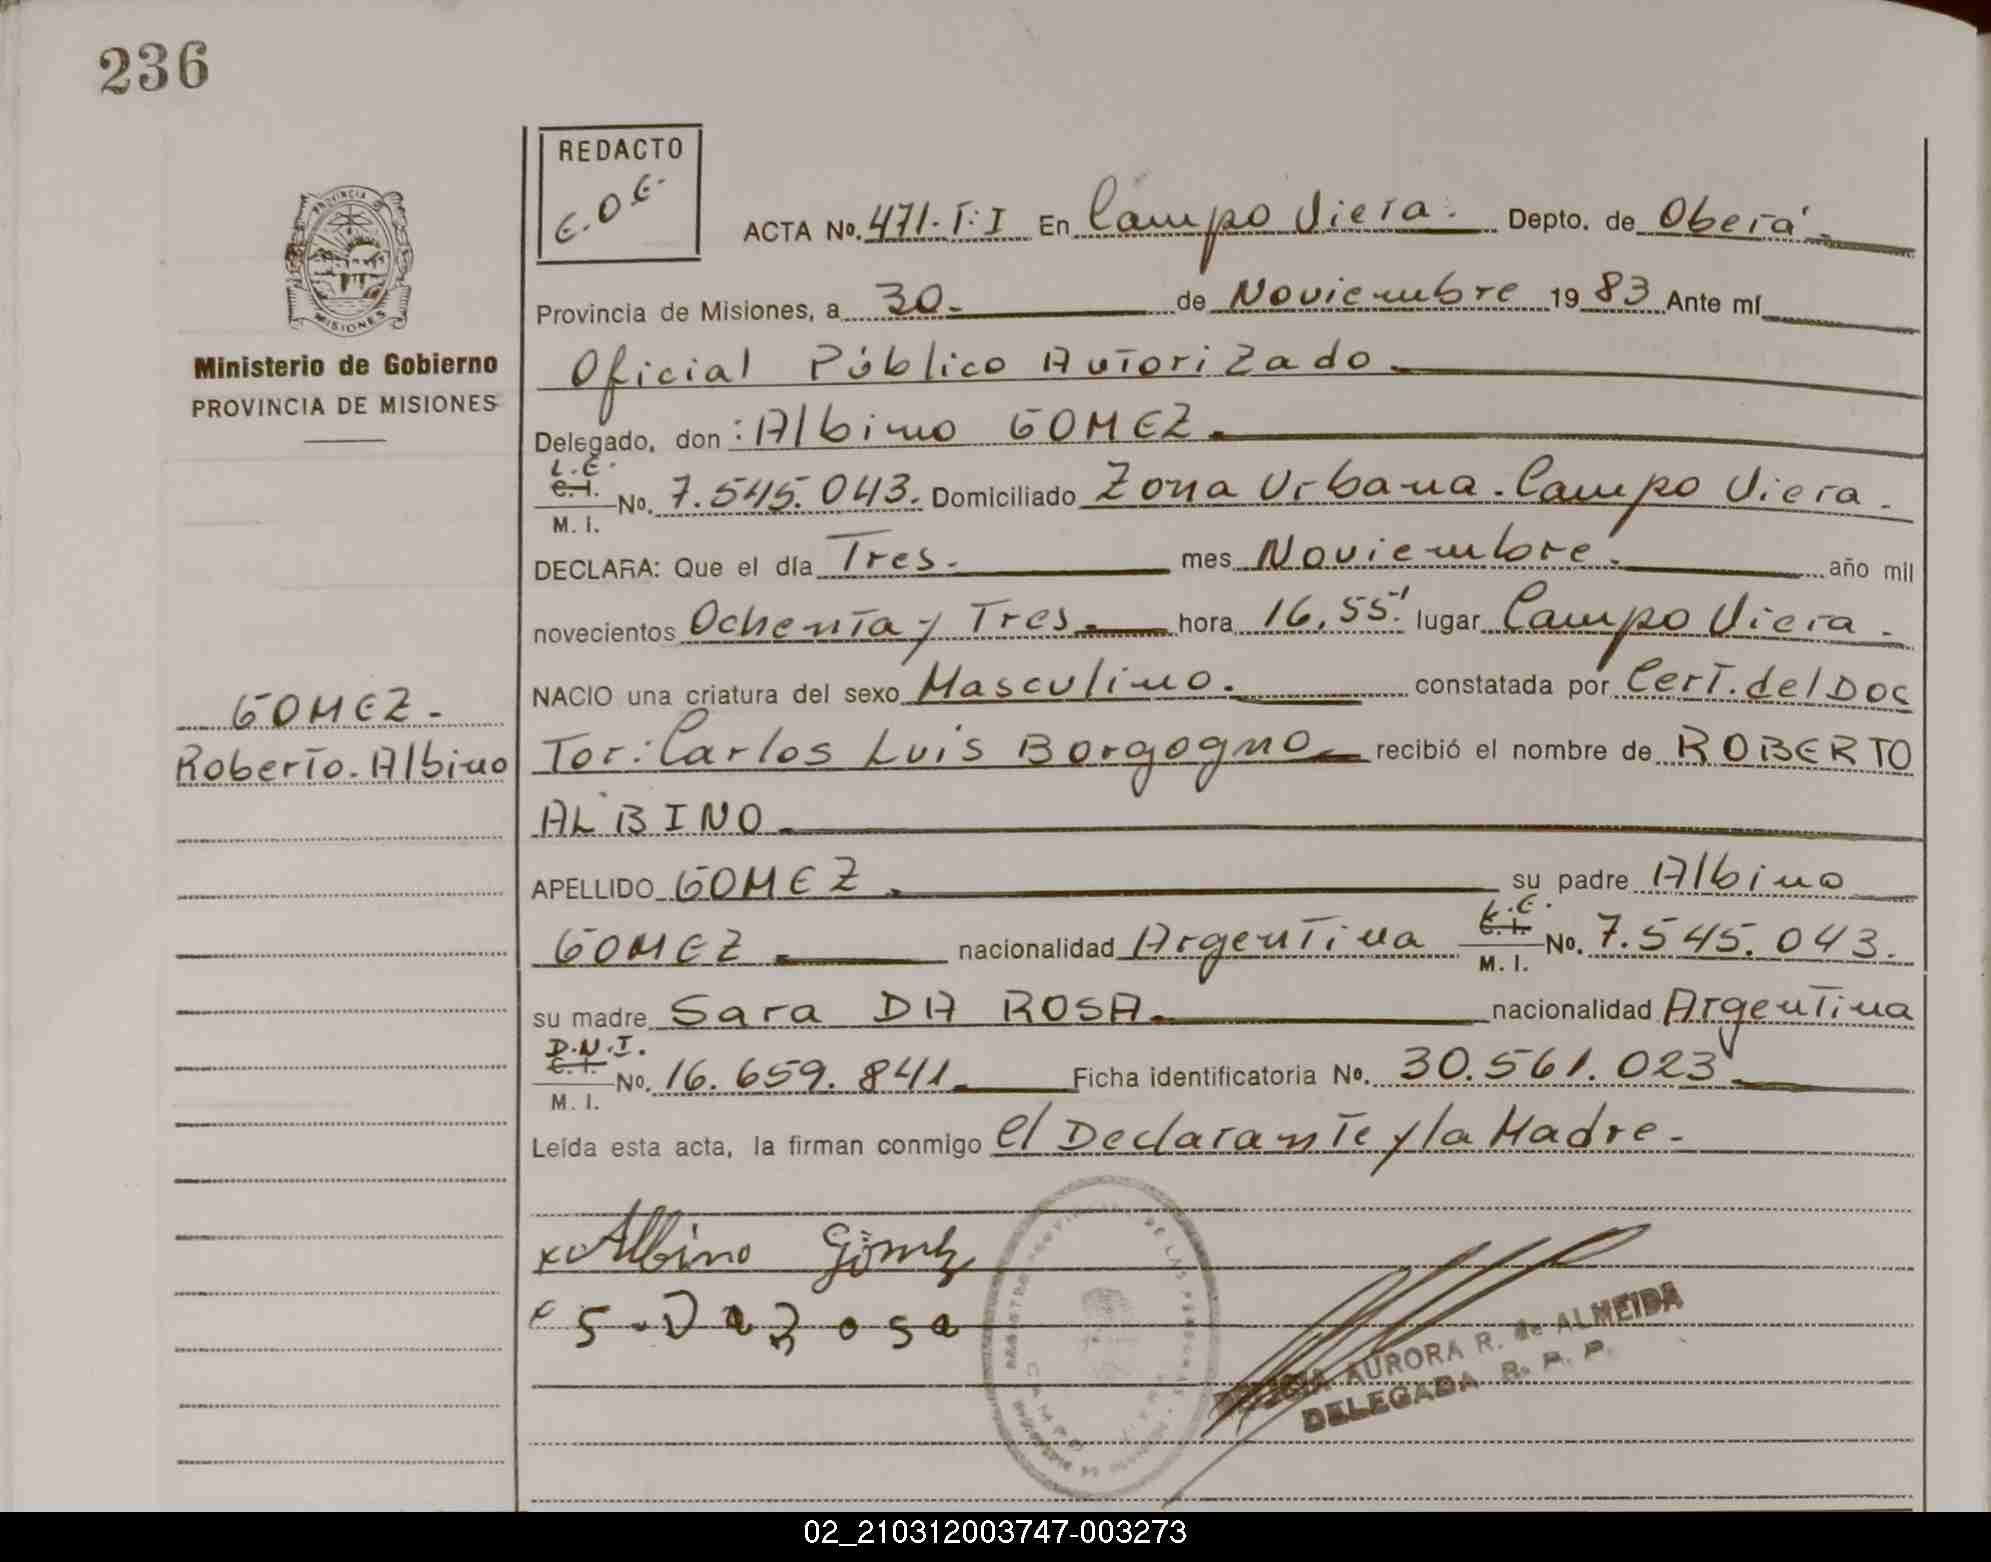 236
REDACTO
E.O.E.
ACTA No. 471. T: I En Campo Viera. Depto. de Oberá
PROVINCIA
MISIONES
Provincia de Misiones, a 30. de Noviembre 1983 Ante mí
Ministerio de Gobierno
PROVINCIA DE MISIONES
Oficial Público Autorizado
Delegado, don: Albino GOMEZ.
L.E.
C.I.
M. I. No. 7.545.043. Domiciliado Zona Urbana. Campo Viera.
DECLARA: Que el día Tres. mes Noviembre. año mil
novecientos Ochenta y Tres. hora 16,55' lugar Campo Viera.
NACIO una criatura del sexo Masculino. constatada por Cert. del Doc
GOMEZ.
Roberto. Albino
Tor: Carlos Luis Borgogno recibió el nombre de ROBERTO
ALBINO
APELLIDO GOMEZ. su padre Albino
GOMEZ nacionalidad Argentina L.E. C.I. M. I. No. 7.545.043.
su madre Sara DA ROSA. nacionalidad Argentina
D.N.I.
C.I.
M. I. No. 16.659.841. Ficha identificatoria No. 30.561.023
Leída esta acta, la firman conmigo el Declarante y la Madre.
x Albino Gómez
x S. Da Rosa
AURORA R. de ALMEIDA
DELEGADA R. P. P.
02_210312003747-003273